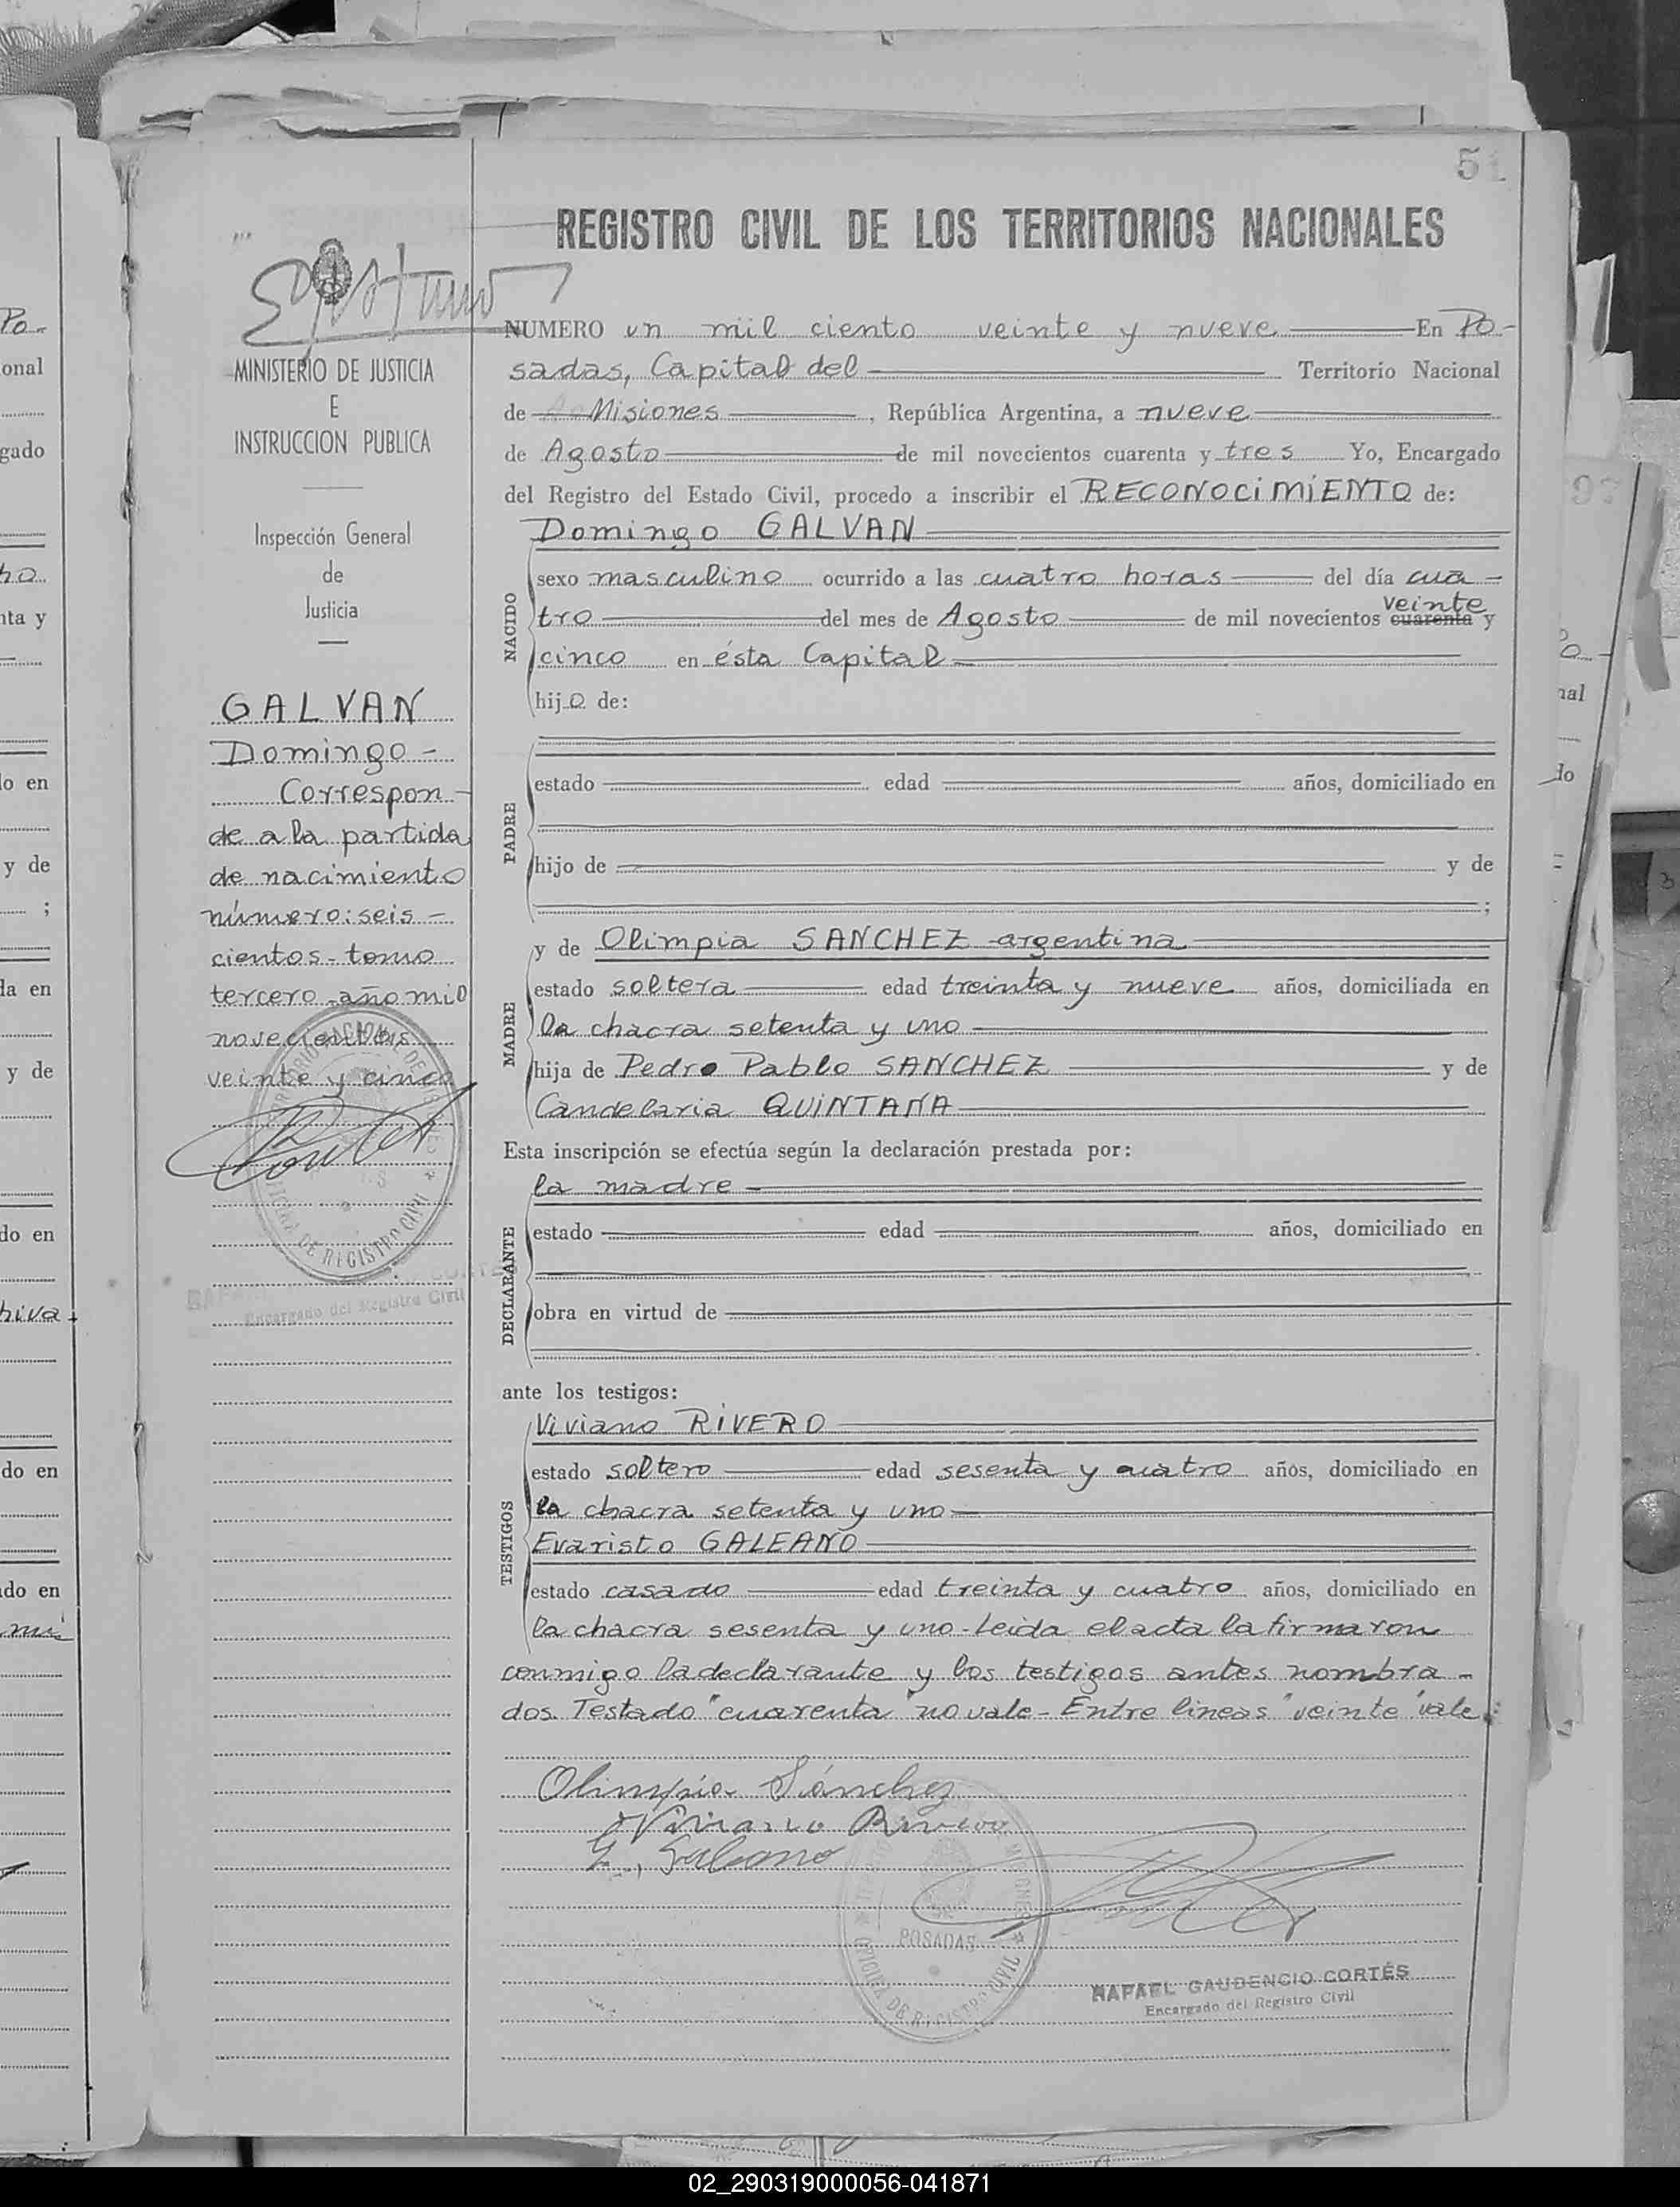 51
REGISTRO CIVIL DE LOS TERRITORIOS NACIONALES
MINISTERIO DE JUSTICIA
E
INSTRUCCION PUBLICA
Inspección General
de
Justicia
GALVAN
Domingo -
Correspon -
de a la partida
de nacimiento
número: seis -
cientos - tomo
tercero - año mil
novecientos
veinte y cinco
Encargado del Registro Civil
NUMERO un mil ciento veinte y nueve En Po-
sadas, Capital del Territorio Nacional
de Misiones, República Argentina, a nueve
de Agosto de mil novecientos cuarenta y tres Yo, Encargado
del Registro del Estado Civil, procedo a inscribir el RECONOCIMIENTO de:
Domingo GALVAN
NACIDO
sexo masculino ocurrido a las cuatro horas del día cua -
veinte
tro del mes de Agosto de mil novecientos cuarenta y
cinco en ésta Capital
hijo de:
PADRE
estado edad años, domiciliado en
hijo de y de
;
MADRE
y de Olimpia SANCHEZ - argentina
estado soltera edad treinta y nueve años, domiciliada en
la chacra setenta y uno
hija de Pedro Pablo SANCHEZ y de
Candelaria QUINTANA
Esta inscripción se efectúa según la declaración prestada por:
DECLARANTE
la madre -
estado edad años, domiciliado en
obra en virtud de
ante los testigos:
TESTIGOS
Viviano RIVERO
estado soltero edad sesenta y cuatro años, domiciliado en
la chacra setenta y uno
Evaristo GALEANO
estado casado edad treinta y cuatro años, domiciliado en
la chacra sesenta y uno - Leida el acta la firmaron
conmigo la declarante y los testigos antes nombra -
dos. Testado "cuarenta" no vale - Entre lineas "veinte" vale.
Olimpia Sánchez
Viviano Rivero
E. Galeano
POSADAS
OFICINA DE REGISTRO CIVIL
RAFAEL GAUDENCIO CORTÉS
Encargado del Registro Civil
02_290319000056-041871